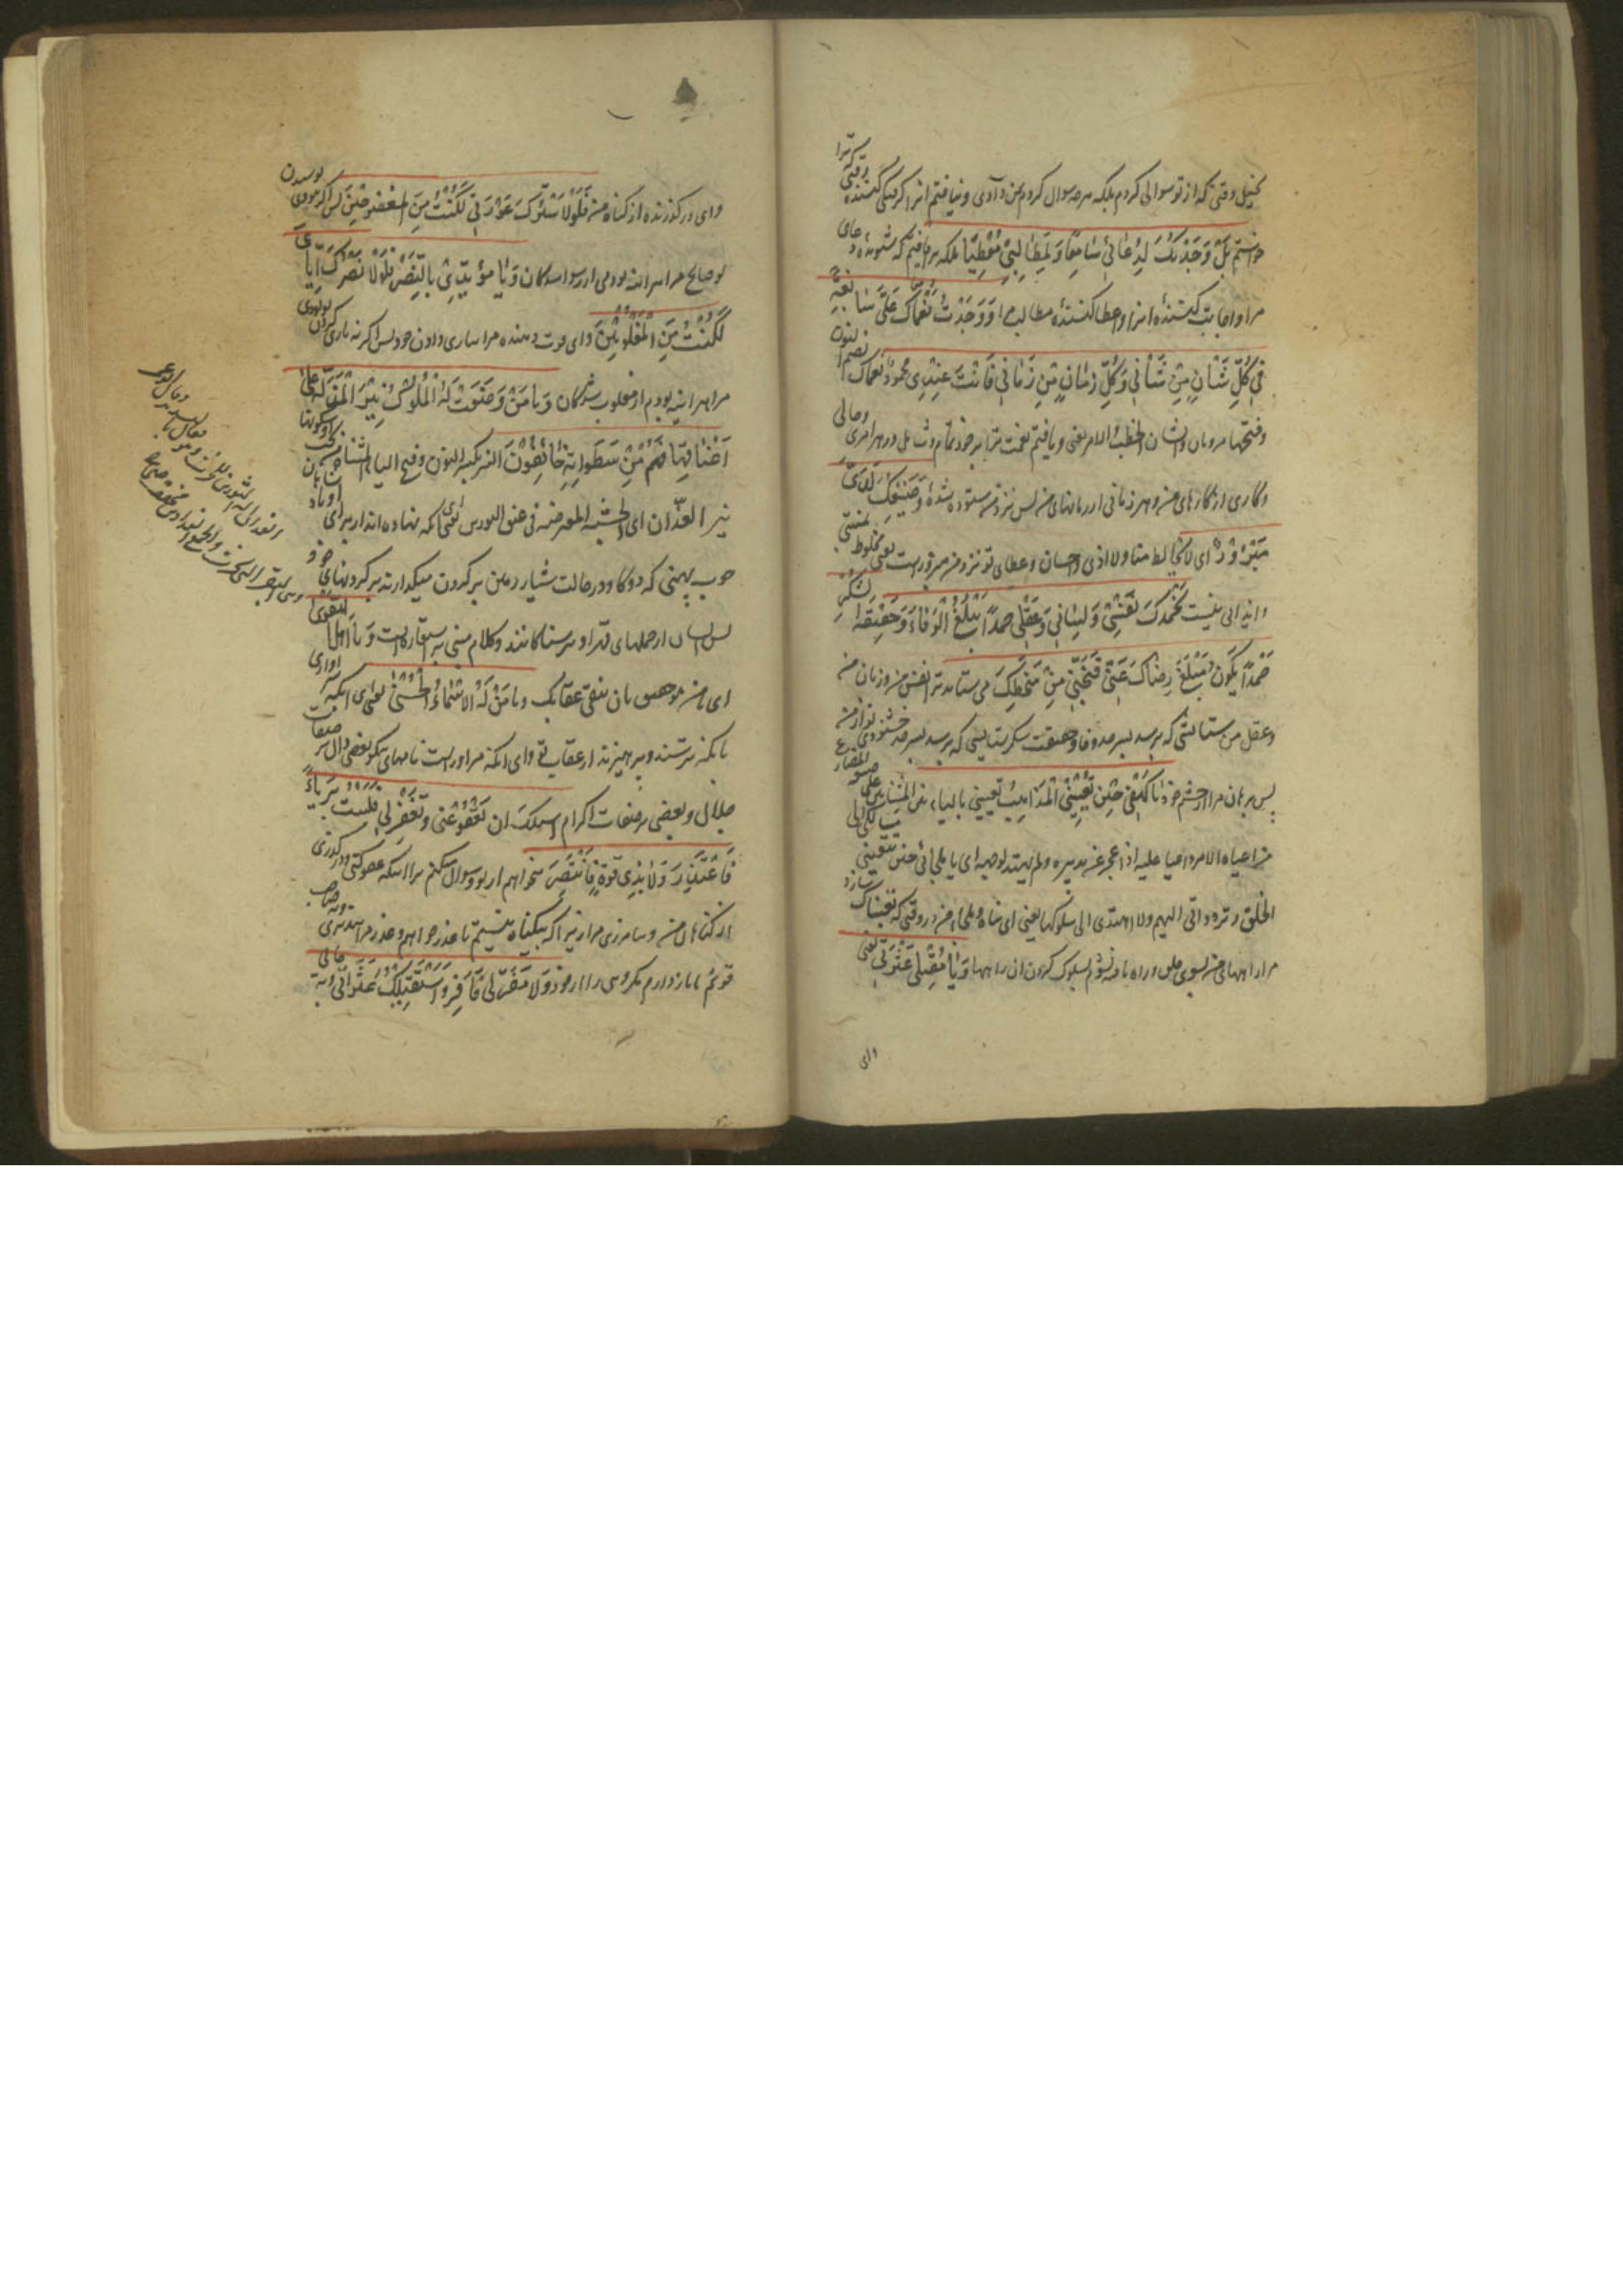 بخیل وقتی که از تو سوالی کردم بلکه هر سوال کردم بمن دادی و نیافتم ترا گرفتگی کننده وقتی که ترا
خواستم بَلْ وَجَدْتُكَ لِدُعائي سامِعًا وَلِمَطالِبي مُعْطِيًا بلکه یافتم ترا که شنونده دعای
مرا و اجابت کننده آنرا و عطا کننده مطالب مرا وَ وَجَدْتُ نُعْماكَ عَلَيَّ سابِغَةً
في كُلِّ شَأْنٍ مِنْ شَأْني وَكُلِّ زَمانٍ مِنْ زَماني فَأَنْتَ عِنْدي مَحْمُودٌ نعماک بضم النون
وفتحها مرویان والشان الخطب والامر یعنی و یافتم نعمت ترا بر خود تمام و شامل در هر امری و حالی
و کاری از کارهای من و هر زمانی از زمانهای من پس تو نزد من ستوده شدهٔ وَصَنيعُكَ لَدَيَّ
مَبْرُورٌ ای لا یخالطه منا ولا اذی و احسان و عطای تو نزد من مبرور است یعنی مخلوط بمنتی
و ایذائی نیست تَحْمَدُكَ نَفْسي وَلِساني وَعَقْلي حَمْدًا يَبْلُغُ الْوَفاءَ وَحَقيقَةَ الشُّكْرِ
حَمْدًا يَكُونُ مَبْلَغَ رِضاكَ عَنّي فَنَجِّني مِنْ سَخَطِكَ می ستاید ترا نفس من و زبان من
و عقل من ستایشی که برسد بسرحد وفا و حقیقت شکر ستایشی که برسد بسرحد خشنودی تو از من
پس برهان مرا از خشم خود يا كَهْفي حينَ تُعْييني الْمَذاهِبُ تعیینی بالیاء علی صیغة المضارع
من اعیاه الامر و اعیا علیه اذا عجز عن تدبیره ولم یهتد لوجهه ای یا ملجائی حین تتعبنی مسالکی الی
الخلق و تردداتی الیهم ولا اهتدی الی سلوکها یعنی ای پناه و ملجاء من در وقتی که تعبناک سازد
مرا راههای من بسوی خلق و راه یافته نشوم بسلوک کردن آن راهها وَيا مُقيلي عَثْرَتي یعنی
وای
وای درگذرنده از گناه من فَلَوْلا سَتْرُكَ عَوْرَتي لَكُنْتُ مِنَ الْمَفْضُوحينَ پس اگر نبودی پوشیدن
تو قبایح مرا هر آینه بودمی از رسواشدگان وَيا مُؤَيِّدي بِالنَّصْرِ فَلَوْلا نَصْرُكَ إِيّايَ
لَكُنْتُ مِنَ الْمَغْلُوبينَ وای قوت دهنده مرا بیاری دادن خود پس اگر نه یاری کردن تو بودی
مرا هر آینه بودم از مغلوب شدگان وَيا مَنْ وَضَعَتْ لَهُ الْمُلُوكُ نِيرَ الْمَذَلَّةِ عَلى
أَعْناقِها فَهُمْ مِنْ سَطَواتِهِ خائِفُونَ النیر بکسر النون وفتح الیاء المثناة تحت
نیر الفدان ای الخشبة المعرضة فی عنق الثورین یعنی ای آنکه نهاده اند از برای او پادشاهان
چوب پهنی که دو گاو در حالت شیار زمین بر گردن میگذارند بر گردنهای خود
پس ایشان از حملهای قهر او ترسناکانند و کلام مبنی بر استعاره است وَيا أَهْلَ التَّقْوى
ای من هو حقیق بان یتقی عقابک ويا مَنْ لَهُ الْأَسْماءُ الْحُسْنى یعنی ای آنکه سزاواری
بآنکه بترسند و بپرهیزند از عقاب تو وای آنکه مر او راست نامهای نیکو بعضی دال بر صفات
جلال و بعضی بر صفات اکرام أَسْأَلُكَ أَنْ تَعْفُوَ عَنّي وَتَغْفِرَ لي فَلَسْتُ بَريئًا
فَأَعْتَذِرَ وَلا بِذي قُوَّةٍ فَأَنْتَصِرَ میخواهم از تو و سوال میکنم ترا اینکه عفو کنی و درگذری
از گناهان من و بیامرزی مرا زیرا که بیگناه نیستم تا عذر خواهم و عذر من پذیری و نه صاحب
قوتم تا باز دارم مکروهی را از خود وَلا مَفَرَّ لي فَأَفِرَّ وَأَسْتَقيلُكَ عَثَراتي